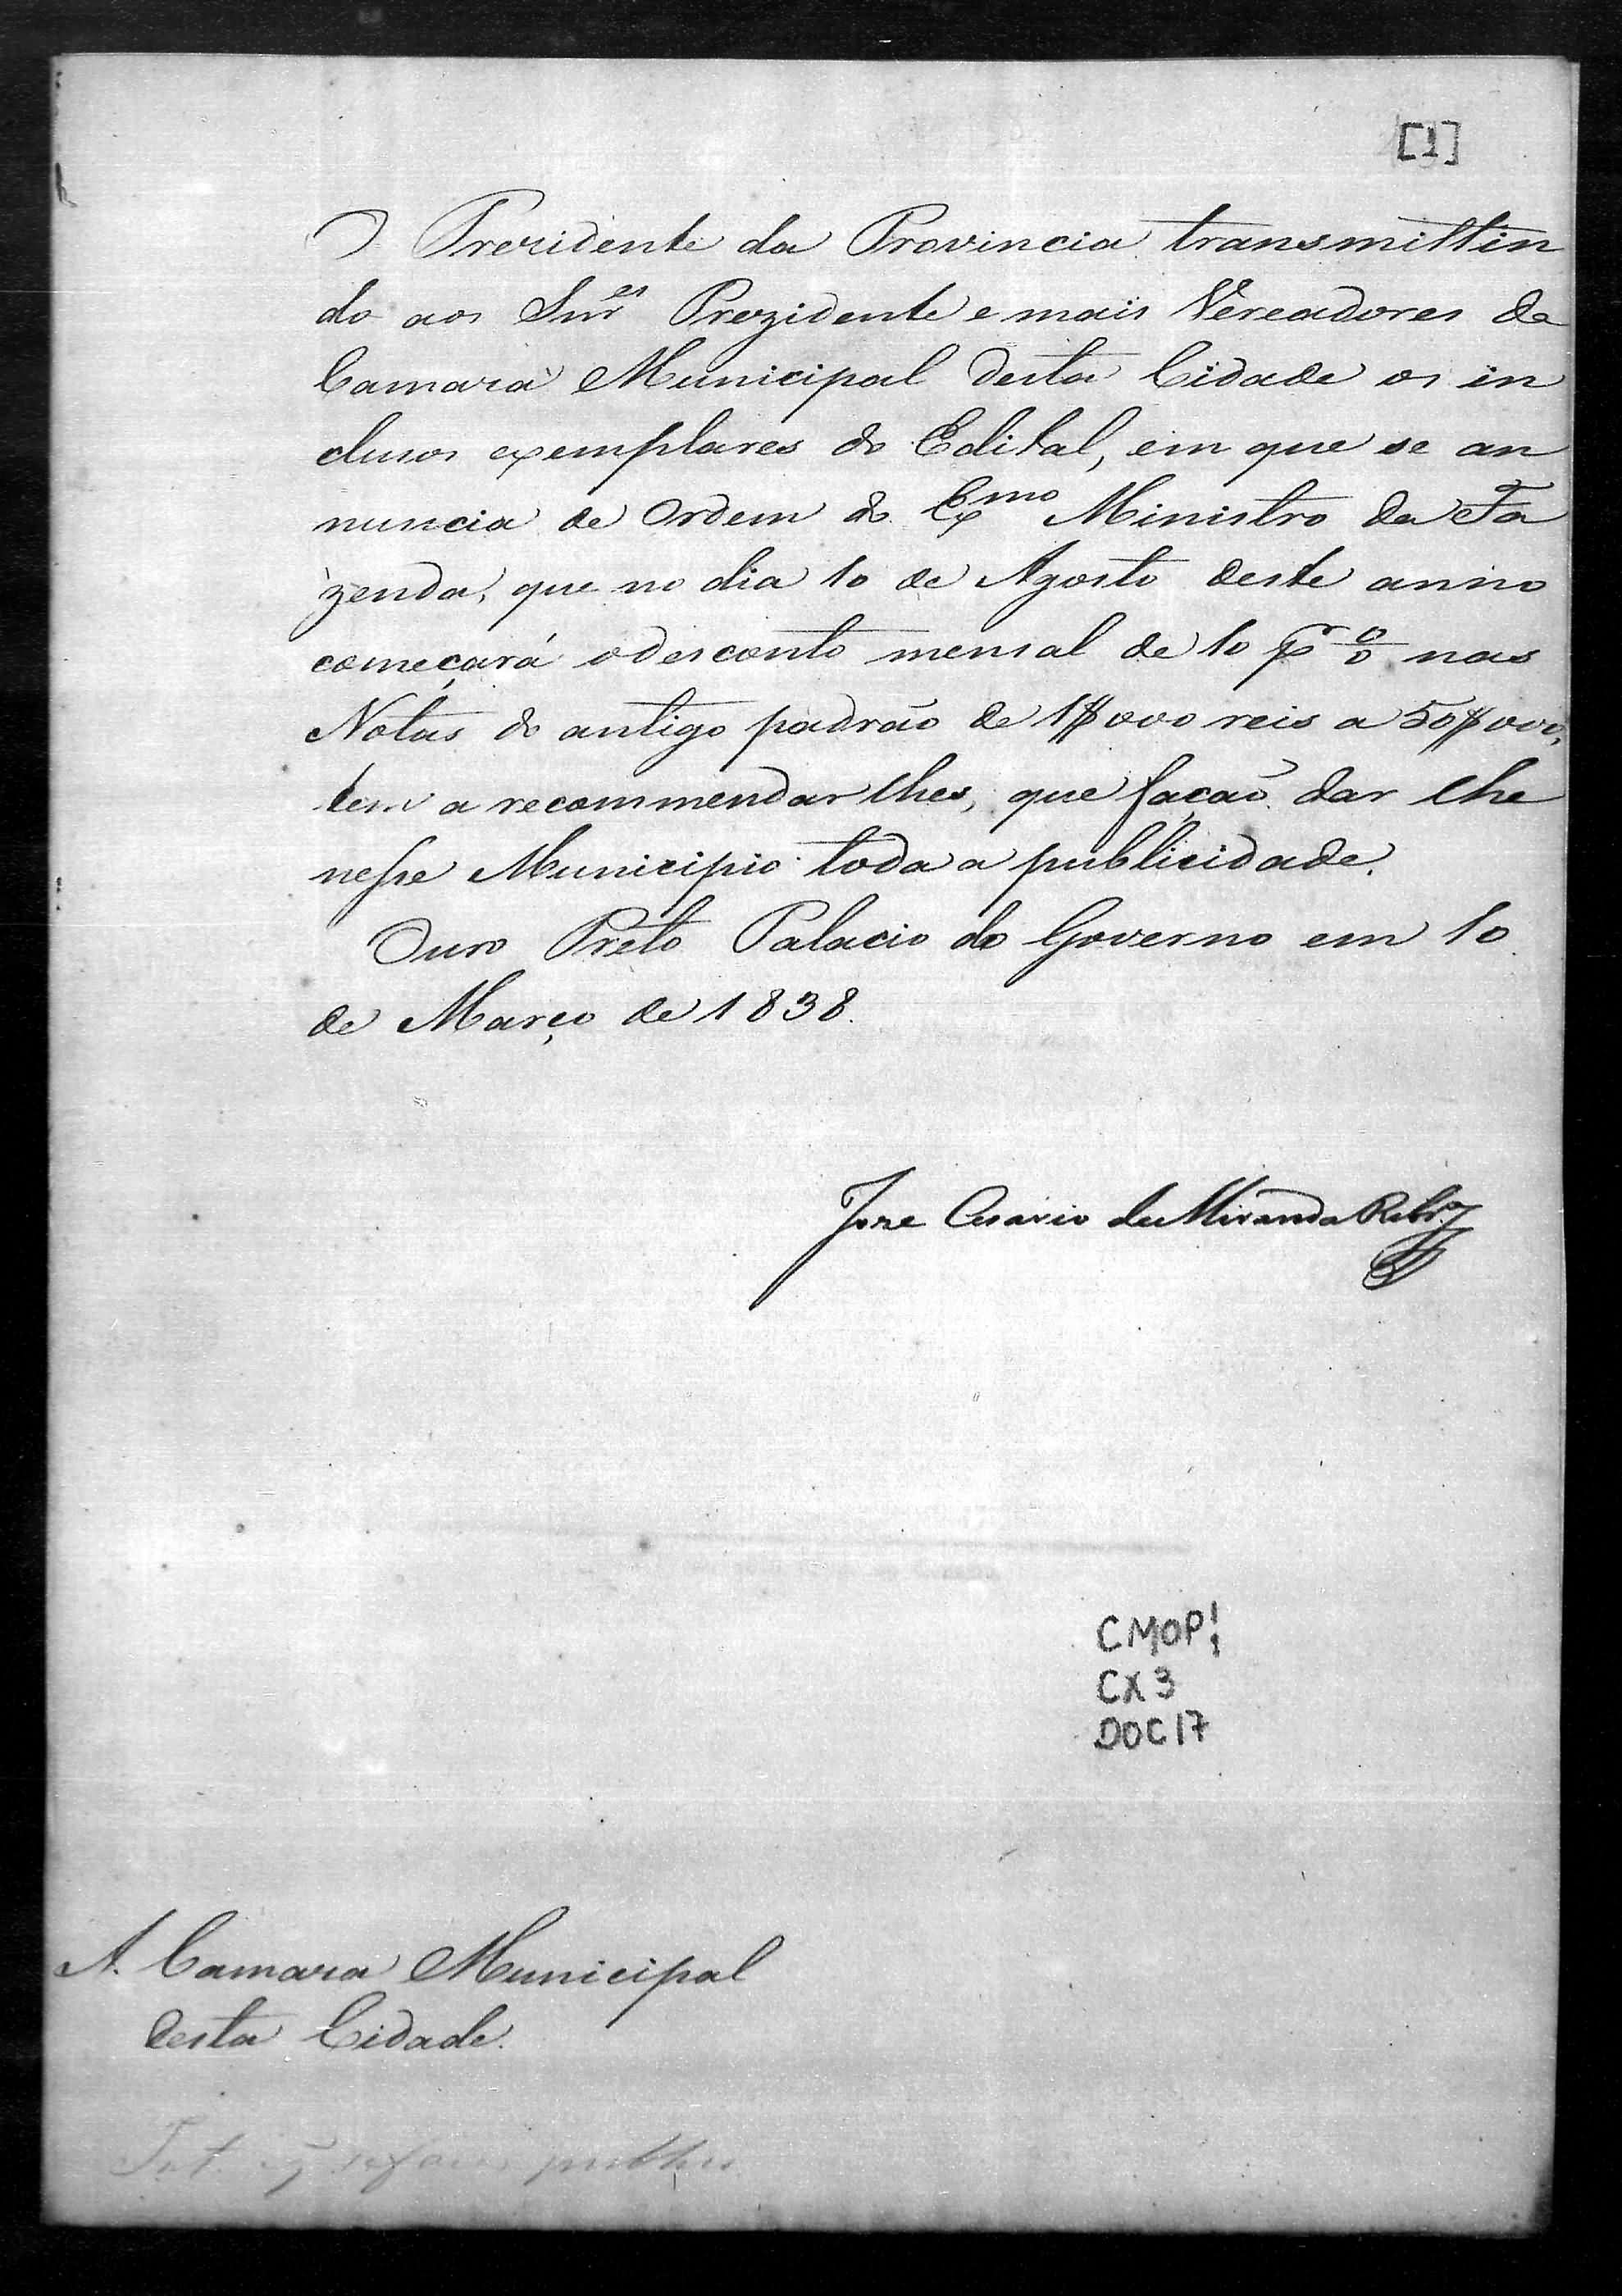 [1]
O Prezidente da Provincia transmittin
do aos Snr.es Prezidente e mais Vereadores da
Camara Municipal desta Cidade os in
clusos exemplares do Edital, em que se an
nuncia de Ordem do Exmo Ministro da Fa
zenda, que no dia 10 de Agosto deste anno
começará o desconto mensal de 10 pr % nas
Notas do antigo padrão de 1$000 reis a 50$000,
tem a recommendar lhes, que fação dar lhe
nesse Municipio toda a publicidade.
Ouro Preto Palacio do Governo em 10
de Março de 1838.
Jose Cesario de Miranda Ribro
CMOP!
CX 3
DOC 17
A. Camara Municipal
desta Cidade.